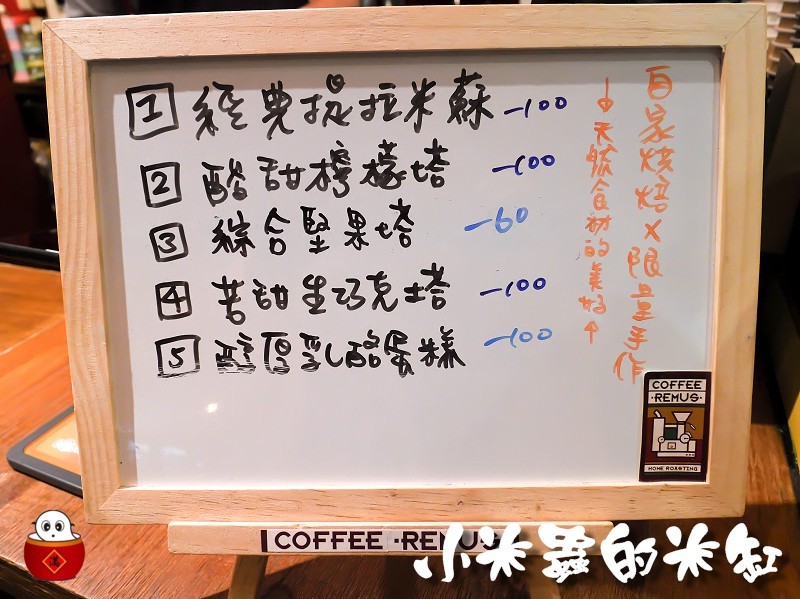 1 經典提拉米蘇 -100
2 酸甜檸檬塔 -100
3 綜合堅果塔 -60
4 苦甜生巧克力塔 -100
5 醇厚乳酪蛋糕 -100
自家烘焙X限量手作
↓天然食材的美好↑
COFFEE
·REMUS·
HOME ROASTING
COFFEE ·REMUS
小米蟲的米缸